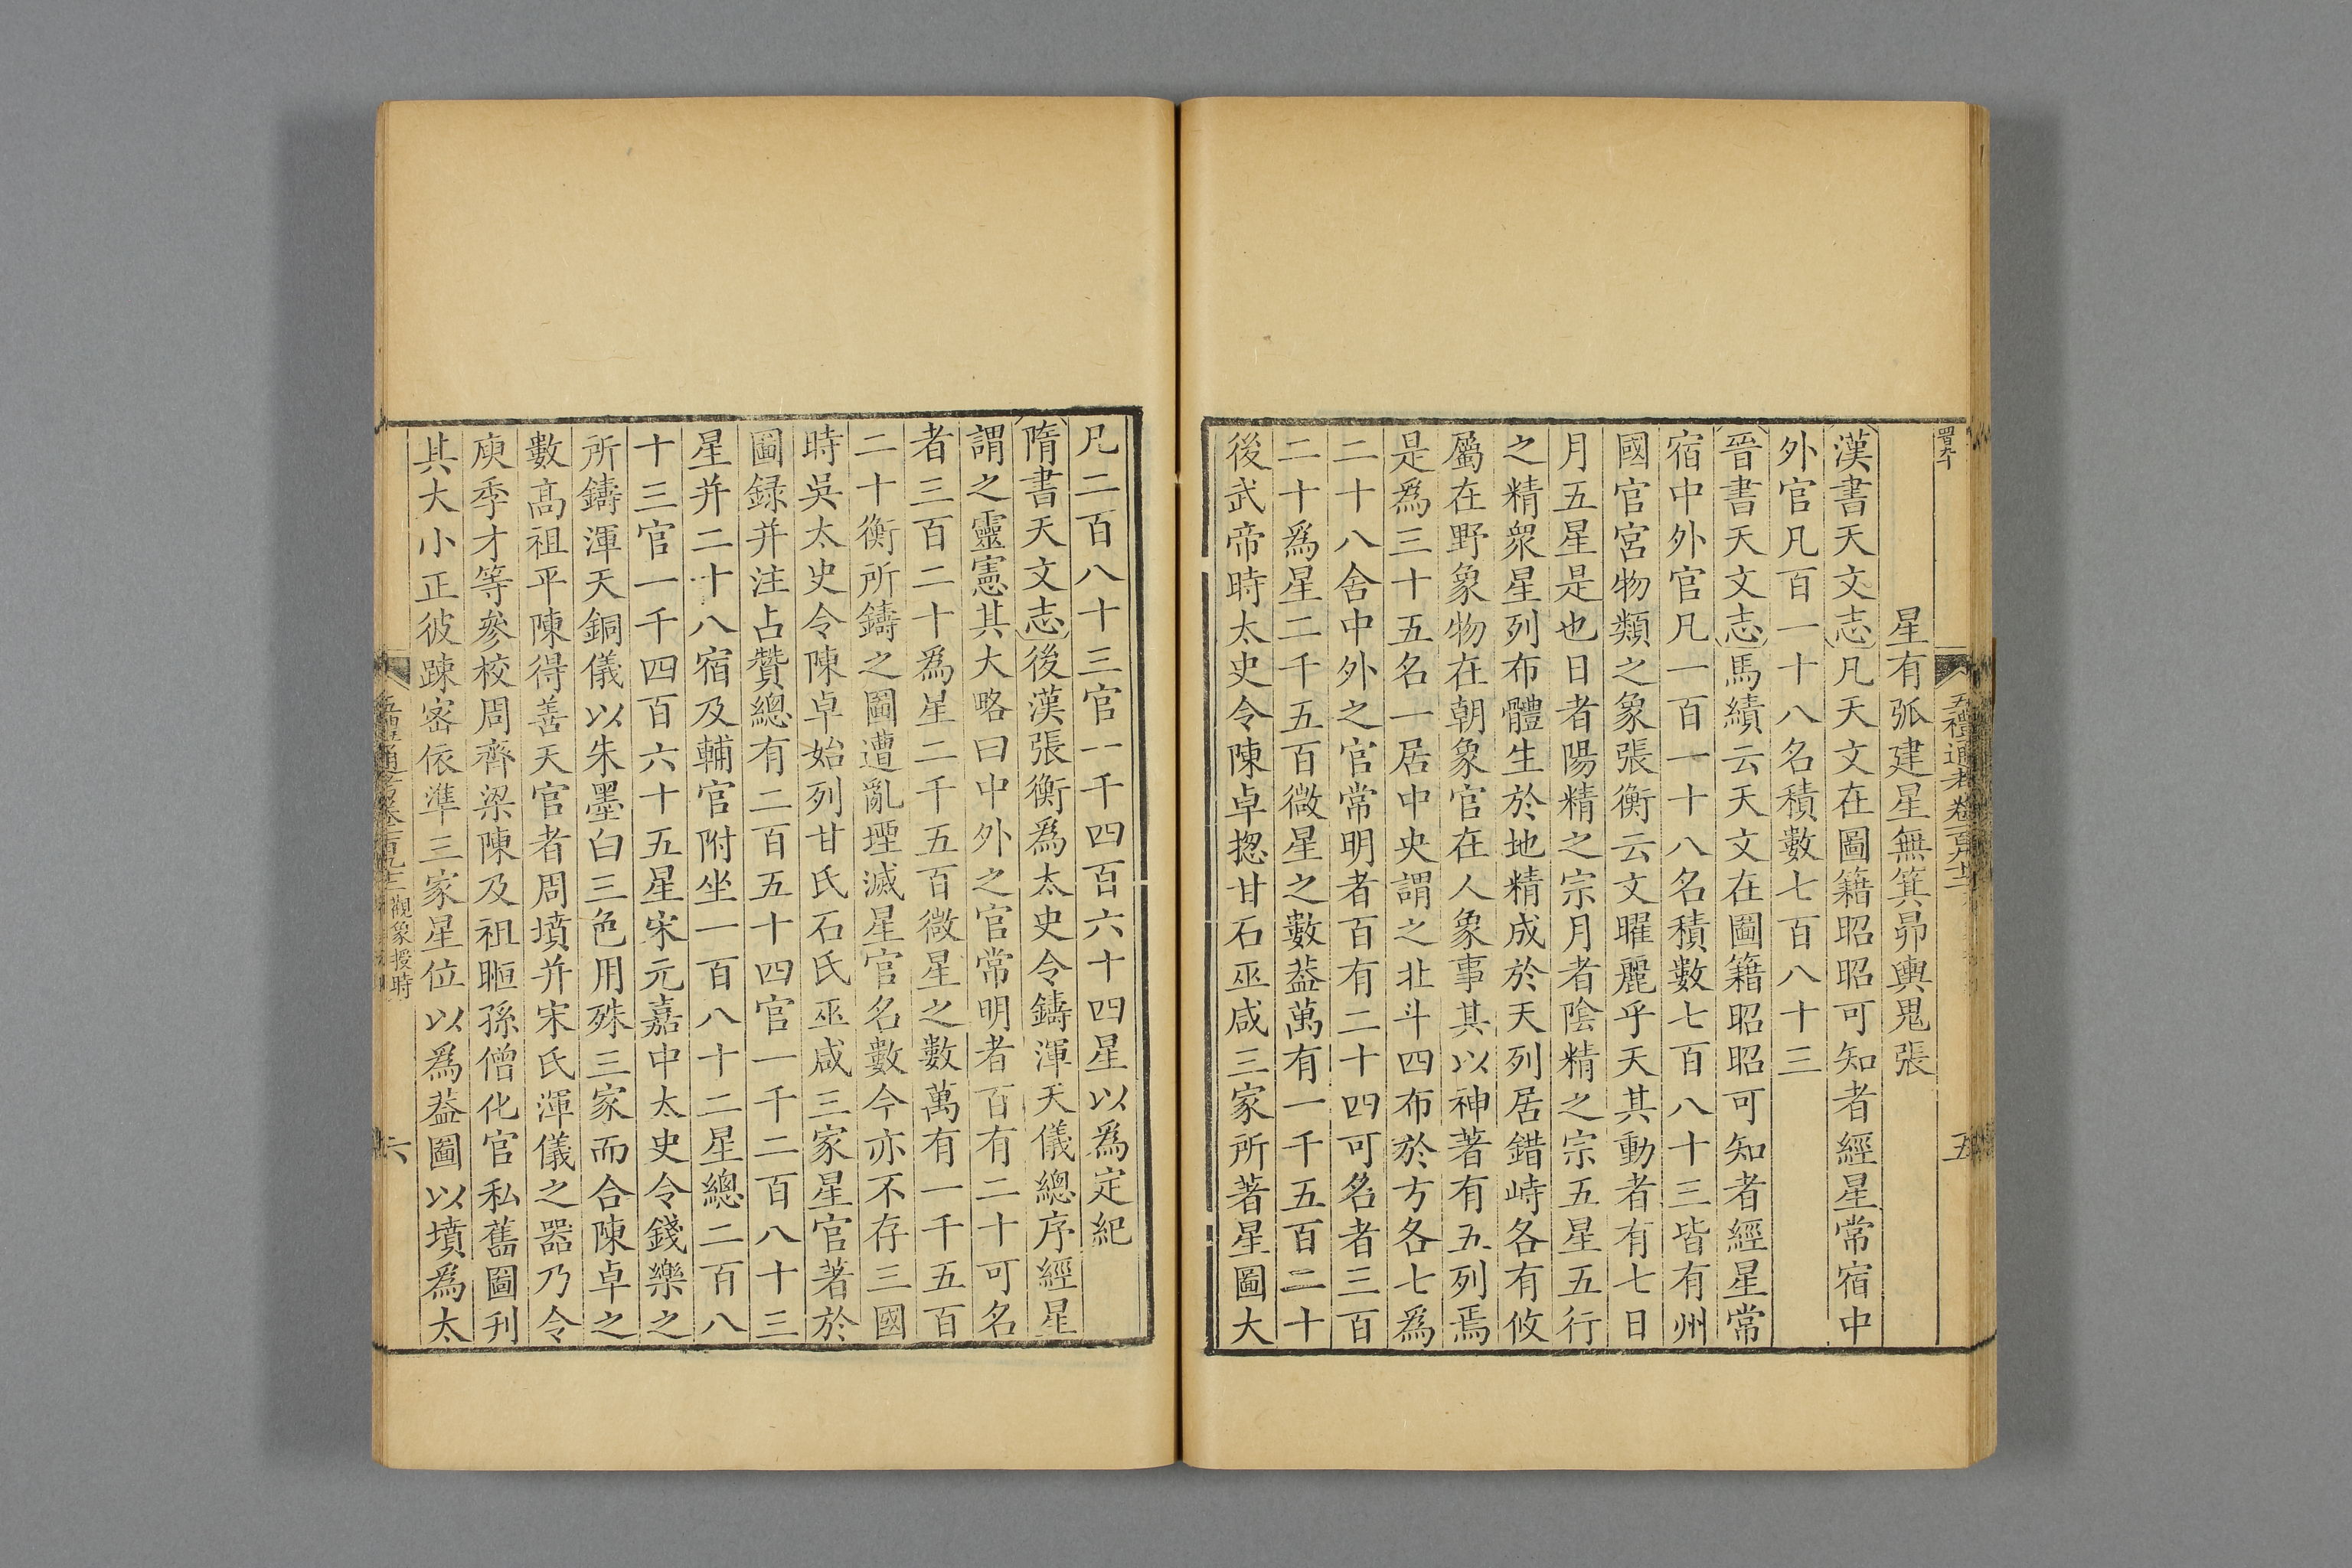 五禮通考卷一百九十二
五
星有弧建星無箕昴輿鬼張
漢書天文志凡天文在圖籍昭昭可知者經星常宿中
外官凡百一十八名積數七百八十三
晉書天文志馬績云天文在圖籍昭昭可知者經星常
宿中外官凡一百一十八名積數七百八十三皆有州
國官宮物類之象張衡云文曜麗乎天其動者有七日
月五星是也日者陽精之宗月者陰精之宗五星五行
之精衆星列布體生於地精成於天列居錯峙各有攸
屬在野象物在朝象官在人象事其以神著有五列焉
是爲三十五名一居中央謂之北斗四布於方各七爲
二十八舍中外之官常明者百有二十四可名者三百
二十爲星二千五百微星之數葢萬有一千五百二十
後武帝時太史令陳卓揔甘石巫咸三家所著星圖大
凡二百八十三官一千四百六十四星以爲定紀
隋書天文志後漢張衡爲太史令鑄渾天儀總序經星
謂之靈憲其大略曰中外之官常明者百有二十可名
者三百二十爲星二千五百微星之數萬有一千五百
二十衡所鑄之圖遭亂堙滅星官名數今亦不存三國
時吳太史令陳卓始列甘氏石氏巫咸三家星官著於
圖録并注占贊總有二百五十四官一千二百八十三
星并二十八宿及輔官附坐一百八十二星總二百八
十三官一千四百六十五星宋元嘉中太史令錢樂之
所鑄渾天銅儀以朱墨白三色用殊三家而合陳卓之
數高祖平陳得善天官者周墳并宋氏渾儀之器乃令
庾季才等參校周齊梁陳及祖暅孫僧化官私舊圖刋
其大小正彼疎密依準三家星位以爲葢圖以墳爲太
五禮通考卷一百九十二 觀象授時
六